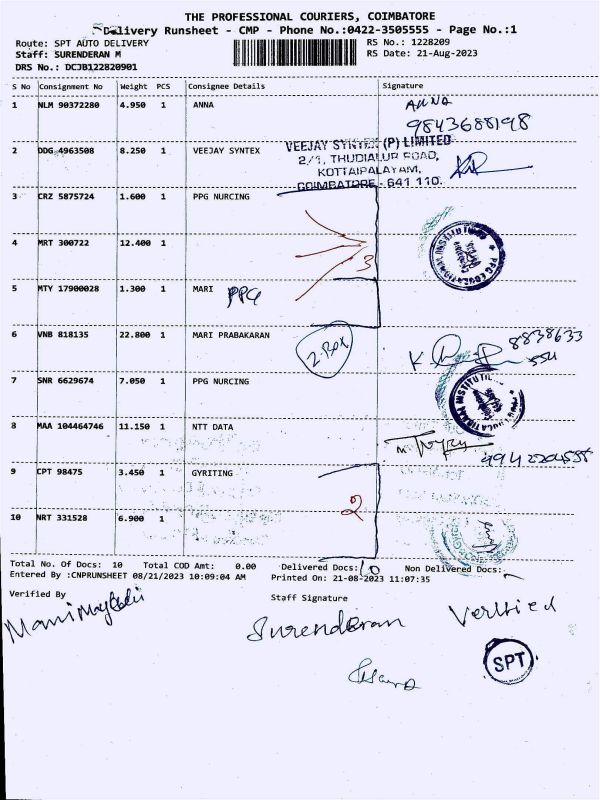 THE PROFESSIONAL COURIERS, COIMBATORE
Delivery Runsheet - CMP - Phone No.:0422-3505555 - Page No.:1
Route: SPT AUTO DELIVERY
RS No.: 1228209
Staff: SURENDERAN M
RS Date: 21-Aug-2023
DRS No.: DCJB122820901
S No Consignment No Weight PCS Consignee Details Signature
1 NLM 90372280 4.950 1 ANNA ANNA
9843688198
2 DDG 4963508 8.250 1 VEEJAY SYNTEX
VEEJAY SYNTEX (P) LIMITED
2/1, THUDIALUR ROAD,
KOTTAIPALAYAM,
COIMBATORE - 641 110.
3 CRZ 5875724 1.600 1 PPG NURCING
4 MRT 300722 12.400 1 3
PPG EDUCATIONAL INSTITUTIONS
5 MTY 17900028 1.300 1 MARI PPG
6 VNB 818135 22.800 1 MARI PRABAKARAN 2.Box
8838633
554
7 SNR 6629674 7.050 1 PPG NURCING
8 MAA 104464746 11.150 1 NTT DATA
9942204555
9 CPT 98475 3.450 1 GYRITING
2
10 NRT 331528 6.900 1
Total No. Of Docs: 10 Total COD Amt: 0.00 Delivered Docs: 10 Non Delivered Docs:-
Entered By :CNPRUNSHEET 08/21/2023 10:09:04 AM Printed On: 21-08-2023 11:07:35
Verified By Staff Signature
Surenderan Verified
SPT